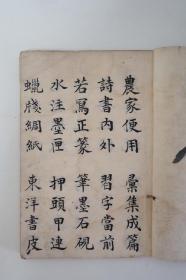 農家便用　彙集成篇
詩書内外　習字當前
若寫正篆　筆墨石硯
水注墨匣　押頭甲連
蠟牋綢紙　東洋書皮